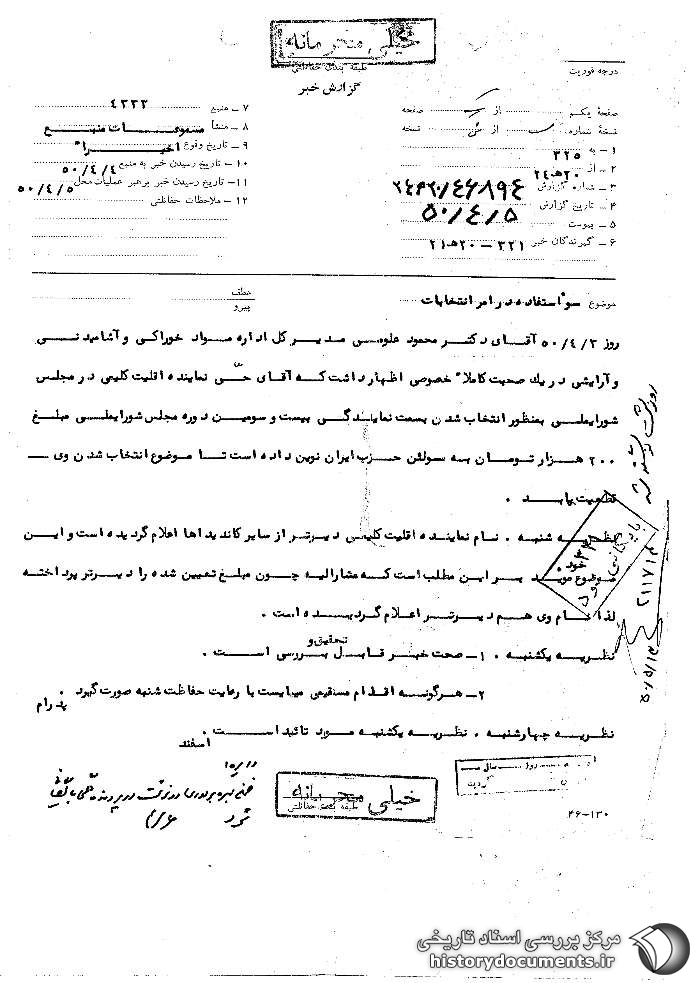 خیلی محرمانه
طبقه بندی حفاظتی
گزارش خبر
درجه فوریت
صفحهٔ یکم از صفحه
نسخهٔ شماره از نسخه
۱ – به ۳۲۵
۲ – از ۲۰ ه‍ ۲۴
۳ – شماره گزارش
۴ – تاریخ گزارش ۵۰/۴/۵
۵ – پیوست
۶ – گیرندگان خبر ۳۲۱ – ۲۰ ه‍ ۲۱
۷ – منبع ۴۲۳۲
۸ – منشأ مسموعات منبع
۹ – تاریخ وقوع اخیراً
۱۰ – تاریخ رسیدن خبر به منبع ۵۰/۴/۴
۱۱ – تاریخ رسیدن خبر برهبر عملیات محل ۵۰/۴/۵
۱۲ – ملاحظات حفاظتی
موضوع سوء استفاده در امر انتخابات
عطف
پیرو
روز ۵۰/۴/۲ آقای دکتر محمود علومی مدیر کل اداره مواد خوراکی و آشامیدنی
و آرایشی در یك صحبت کاملاً خصوصی اظهار داشت که آقای حّی نماینده اقلیت کلیمی در مجلس
شورایملی بمنظور انتخاب شدن بسمت نمایندگی بیست و سومین دوره مجلس شورایملی مبلغ
۲۰۰ هزار تومان به مسولئن حزب ایران نوین داده است تا موضوع انتخاب شدن وی
قطعیت یابد .
نظریه شنبه . نام نماینده اقلیت کلیمی دیرتر از سایر کاندیداها اعلام گردیده است و این
موضوع موید بر این مطلب است که مشارالیه چون مبلغ تعیین شده را دیرتر پرداخته
لذا نام وی هم دیرتر اعلام گردیده است .
نظریه یکشنبه . ۱– صحت خبر قابل تحقیق و بررسی است .
۲– هرگونه اقدام مستقیمی میبایست با رعایت حفاظت شنبه صورت گیرد . پدرام
نظریه چهارشنبه . نظریه یکشنبه مورد تائید است . اسفند
بایگانی شود
۲۱۱۷۱۴
خیلی محرمانه
طبقه بندی حفاظتی
شود
۲۶-۱۳۰
مرکز بررسی اسناد تاریخی
historydocuments.ir